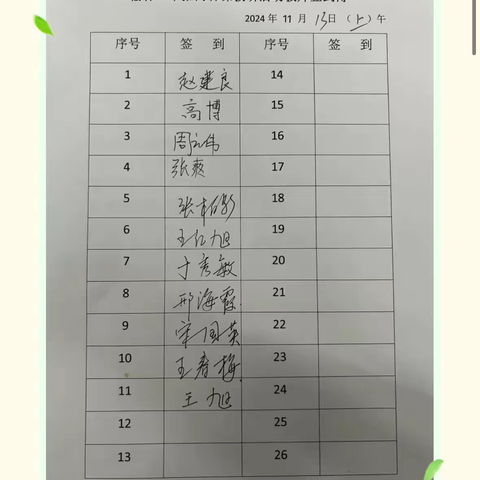 2024 年 11 月 13日（上）午
序号 签 到 序号 签 到
1 赵建良 14
2 高博 15
3 周 伟 16
4 张 17
5 张柏彰 18
6 王仁旭 19
7 于秀敏 20
8 邢海霞 21
9 宋国英 22
10 王春梅 23
11 王旭 24
12 25
13 26